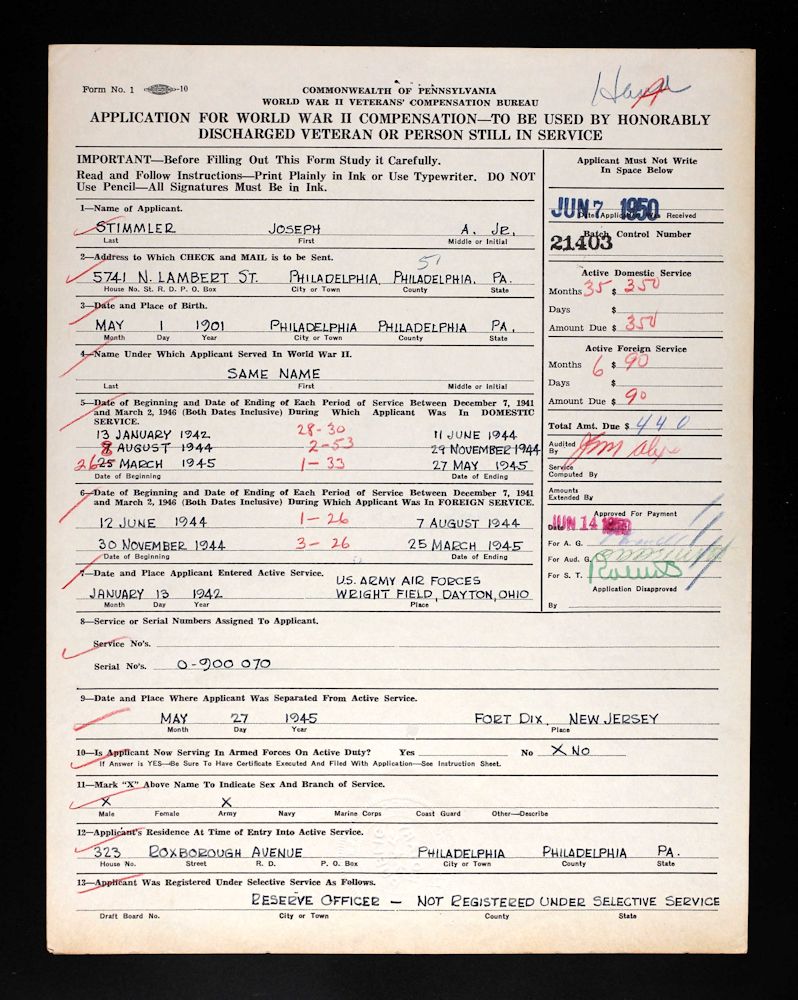 Form No. 1 -10
COMMONWEALTH OF PENNSYLVANIA
WORLD WAR II VETERANS' COMPENSATION BUREAU
APPLICATION FOR WORLD WAR II COMPENSATION—TO BE USED BY HONORABLY
DISCHARGED VETERAN OR PERSON STILL IN SERVICE
IMPORTANT—Before Filling Out This Form Study it Carefully.
Read and Follow Instructions—Print Plainly in Ink or Use Typewriter. DO NOT
Use Pencil—All Signatures Must Be in Ink.
Applicant Must Not Write
In Space Below
JUN 7 1950
Date Application Was Received
Batch Control Number
21403
1—Name of Applicant.
STIMMLER JOSEPH A. JR.
Last First Middle or Initial
2—Address to Which CHECK and MAIL is to be Sent.
51
5741 N. LAMBERT ST. PHILADELPHIA, PHILADELPHIA, PA.
House No. St. R. D. P. O. Box City or Town County State
3—Date and Place of Birth.
MAY 1 1901 PHILADELPHIA PHILADELPHIA PA.
Month Day Year City or Town County State
4—Name Under Which Applicant Served In World War II.
SAME NAME
Last First Middle or Initial
5—Date of Beginning and Date of Ending of Each Period of Service Between December 7, 1941
and March 2, 1946 (Both Dates Inclusive) During Which Applicant Was In DOMESTIC
SERVICE.
13 JANUARY 1942 28-30 11 JUNE 1944
8 AUGUST 1944 2-53 29 NOVEMBER 1944
26 25 MARCH 1945 1-33 27 MAY 1945
Date of Beginning Date of Ending
6—Date of Beginning and Date of Ending of Each Period of Service Between December 7, 1941
and March 2, 1946 (Both Dates Inclusive) During Which Applicant Was In FOREIGN SERVICE.
12 JUNE 1944 1-26 7 AUGUST 1944
30 NOVEMBER 1944 3-26 25 MARCH 1945
Date of Beginning Date of Ending
7—Date and Place Applicant Entered Active Service.
U.S. ARMY AIR FORCES
JANUARY 13 1942 WRIGHT FIELD, DAYTON, OHIO
Month Day Year Place
Active Domestic Service
Months 35 $ 350
Days $
Amount Due $ 350
Active Foreign Service
Months 6 $ 90
Days $
Amount Due $ 90
Total Amt. Due $ 440
Audited
By
Service
Computed By
Amounts
Extended By
Approved For Payment
Date JUN 14 1950
For A. G.
For Aud. G.
For S. T.
Application Disapproved
By
8—Service or Serial Numbers Assigned To Applicant.
Service No's.
Serial No's. O-900 070
9—Date and Place Where Applicant Was Separated From Active Service.
MAY 27 1945 FORT DIX, NEW JERSEY
Month Day Year Place
10—Is Applicant Now Serving In Armed Forces On Active Duty? Yes No X NO
If Answer is YES—Be Sure To Have Certificate Executed And Filed With Application—See Instruction Sheet.
11—Mark "X" Above Name To Indicate Sex And Branch of Service.
X X
Male Female Army Navy Marine Corps Coast Guard Other—Describe
12—Applicant's Residence At Time of Entry Into Active Service.
323 ROXBOROUGH AVENUE PHILADELPHIA PHILADELPHIA PA.
House No. Street R. D. P. O. Box City or Town County State
13—Applicant Was Registered Under Selective Service As Follows.
RESERVE OFFICER — NOT REGISTERED UNDER SELECTIVE SERVICE
Draft Board No. City or Town County State